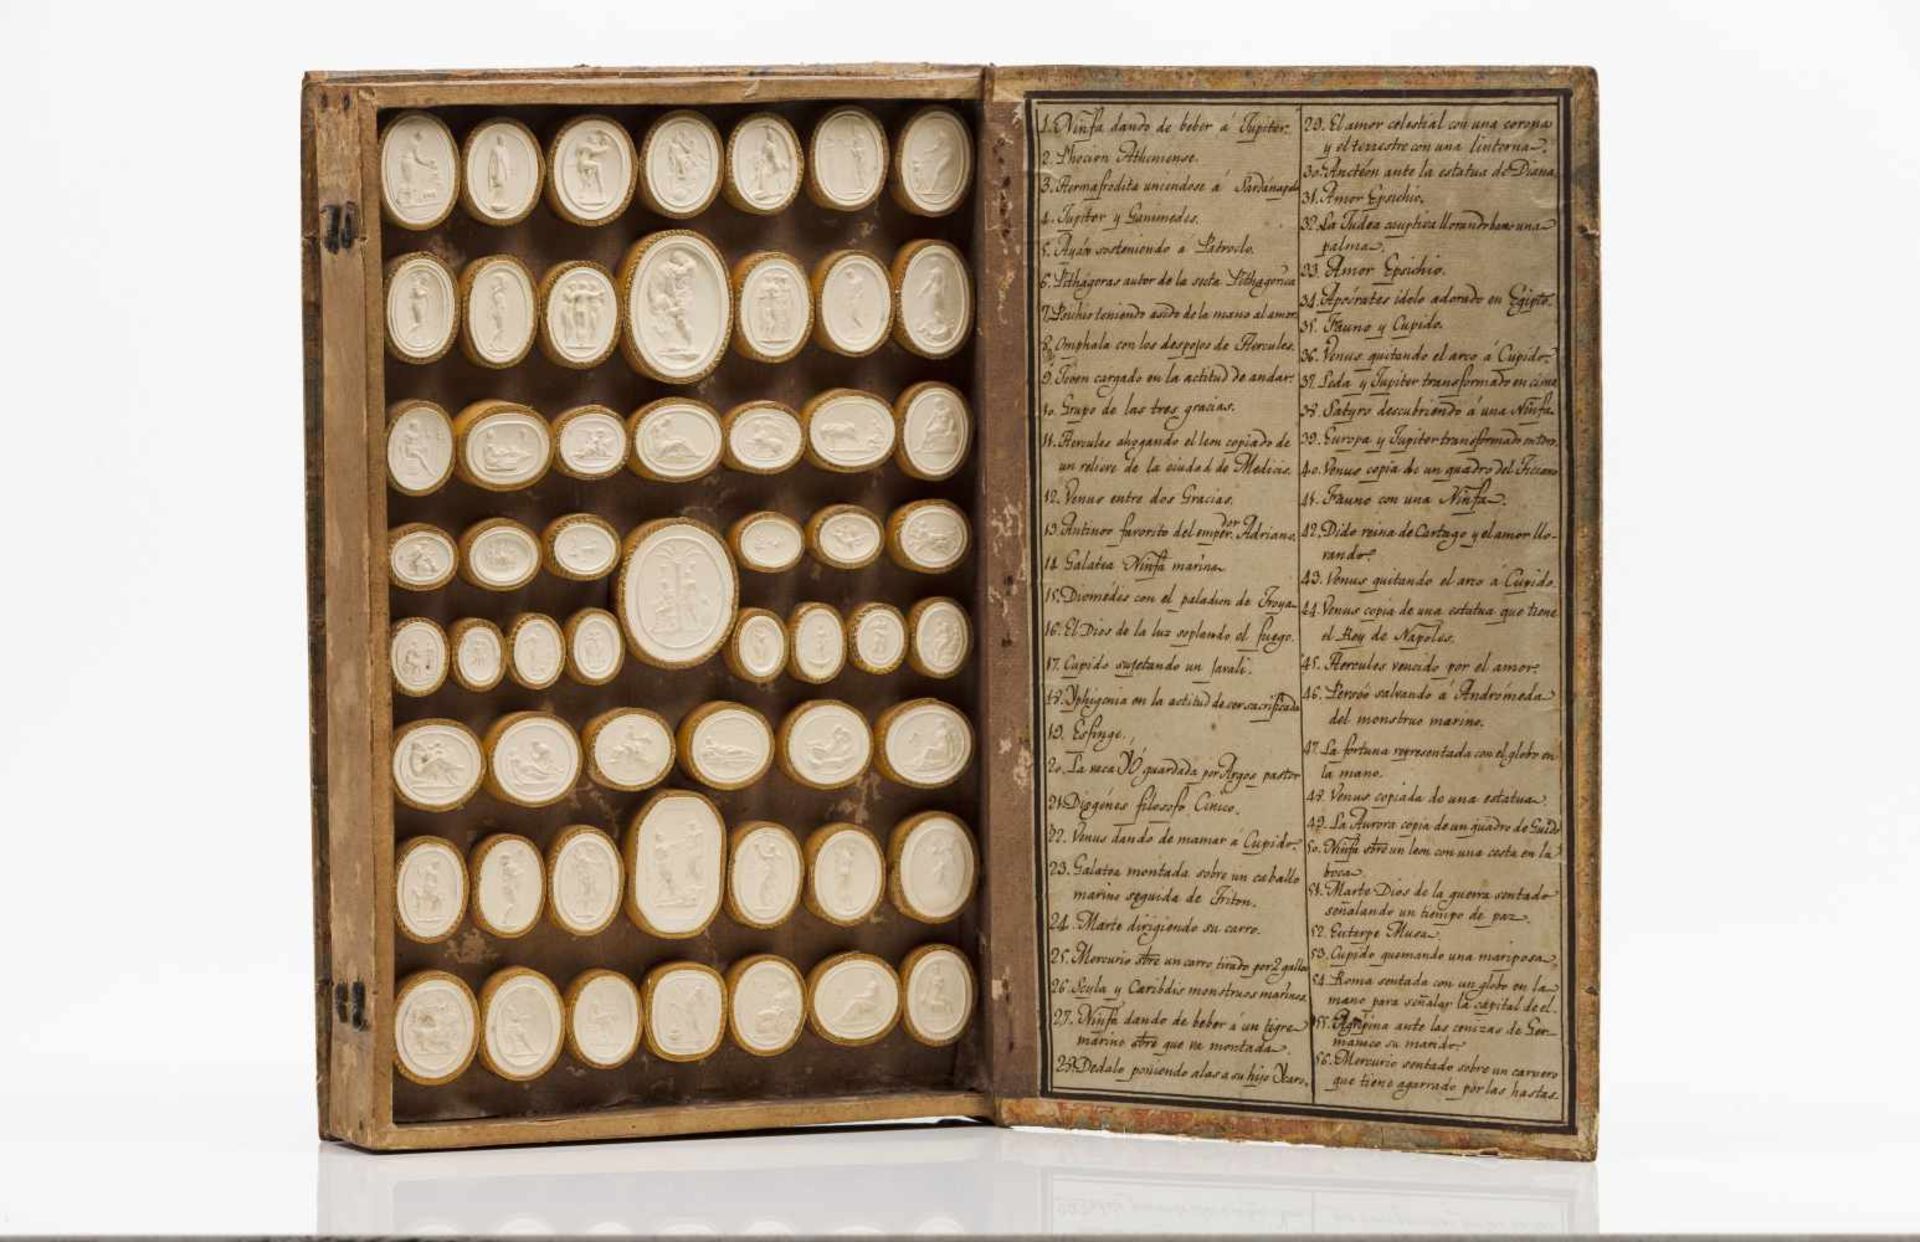 1. Ninfa dando de beber á Jupiter.
2. Phocion Atheniense.
3. Hermafrodita uniendose á Sardánapalo
4. Jupiter y Ganimedes.
5. Ayáx sosteniendo á Pátroclo.
6. Pithágoras autor de la secta Pithagorica
7. Psichis teniendo asido de la mano al amor.
8. Omphala con los despojos de Hercules.
9. Joven cargado en la actitud de andar.
10. Grupo de las tres gracias.
11. Hercules ahogando el leon copiado de
un relieve de la ciudad de Medicis.
12. Venus entre dos Gracias.
13. Antinoo favorito del emperdor Adriano.
14. Galatea Ninfa marina
15. Diomédes con el paladion de Troya
16. El Dios de la luz soplando el fuego.
17. Cupido sujetando un Javali.
18. Yphigenia en la actitud de ser sacrificada
19. Esfinge.
20. La vaca Yó guardada por Argos pastor
21. Diogénes filosofo Cinico.
22. Venus dando de mamar á Cupido.
23. Galatea montada sobre un caballo
marino seguida de Triton.
24. Marte dirigiendo su carro.
25. Mercurio sbre un carro tirado por 2 gallos
26. Scyla y Caribdis monstruos marinos.
27. Ninfa dando de beber á un tigre
marino sbre que va montada.
28. Dedalo poniendo alas a su hijo Ycaro.
29. El amor celestial con una corona
y el terrestre con una linterna.
30. Anctéon ante la estatua de Diana
31. Amor Epsichio.
32. La Judea cauptiva llorando baxo una
palma.
33. Amor Epsichio.
34. Apócrates idolo adorado en Egipto.
35. Fauno y Cupido.
36. Venus quitando el arco á Cupido.
37. Leda y Jupiter transformado en cisne
38. Satyro descubriendo á una Ninfa
39. Europa y Jupiter transformado en toro.
40. Venus copia de un quadro del Ticiano
41. Fauno con una Ninfa.
42. Dido reina de Cartago y el amor llo-
rando.
43. Venus quitando el arco á Cupido.
44. Venus copia de una estatua que tiene
el Rey de Napoles.
45. Hercules vencido por el amor.
46. Perséo salvando á Andrómeda
del monstruo marino.
47. La fortuna representada con el globo en
la mano.
48. Venus copiada de una estatua.
49. La Aurora copia de un quadro de Guido
50. Ninfa sbre un leon con una cesta en la
boca.
51. Marte Dios de la guerra sentado
señalando un tiempo de paz.
52. Euterpe Musa.
53. Cupido quemando una mariposa.
54. Roma sentada con un globo en la
mano para señalar la capital de el.
55. Agripina ante las cenizas de Ger-
manico su marido.
56. Mercurio sentado sobre un carnero
que tiene agarrado por las hastas.